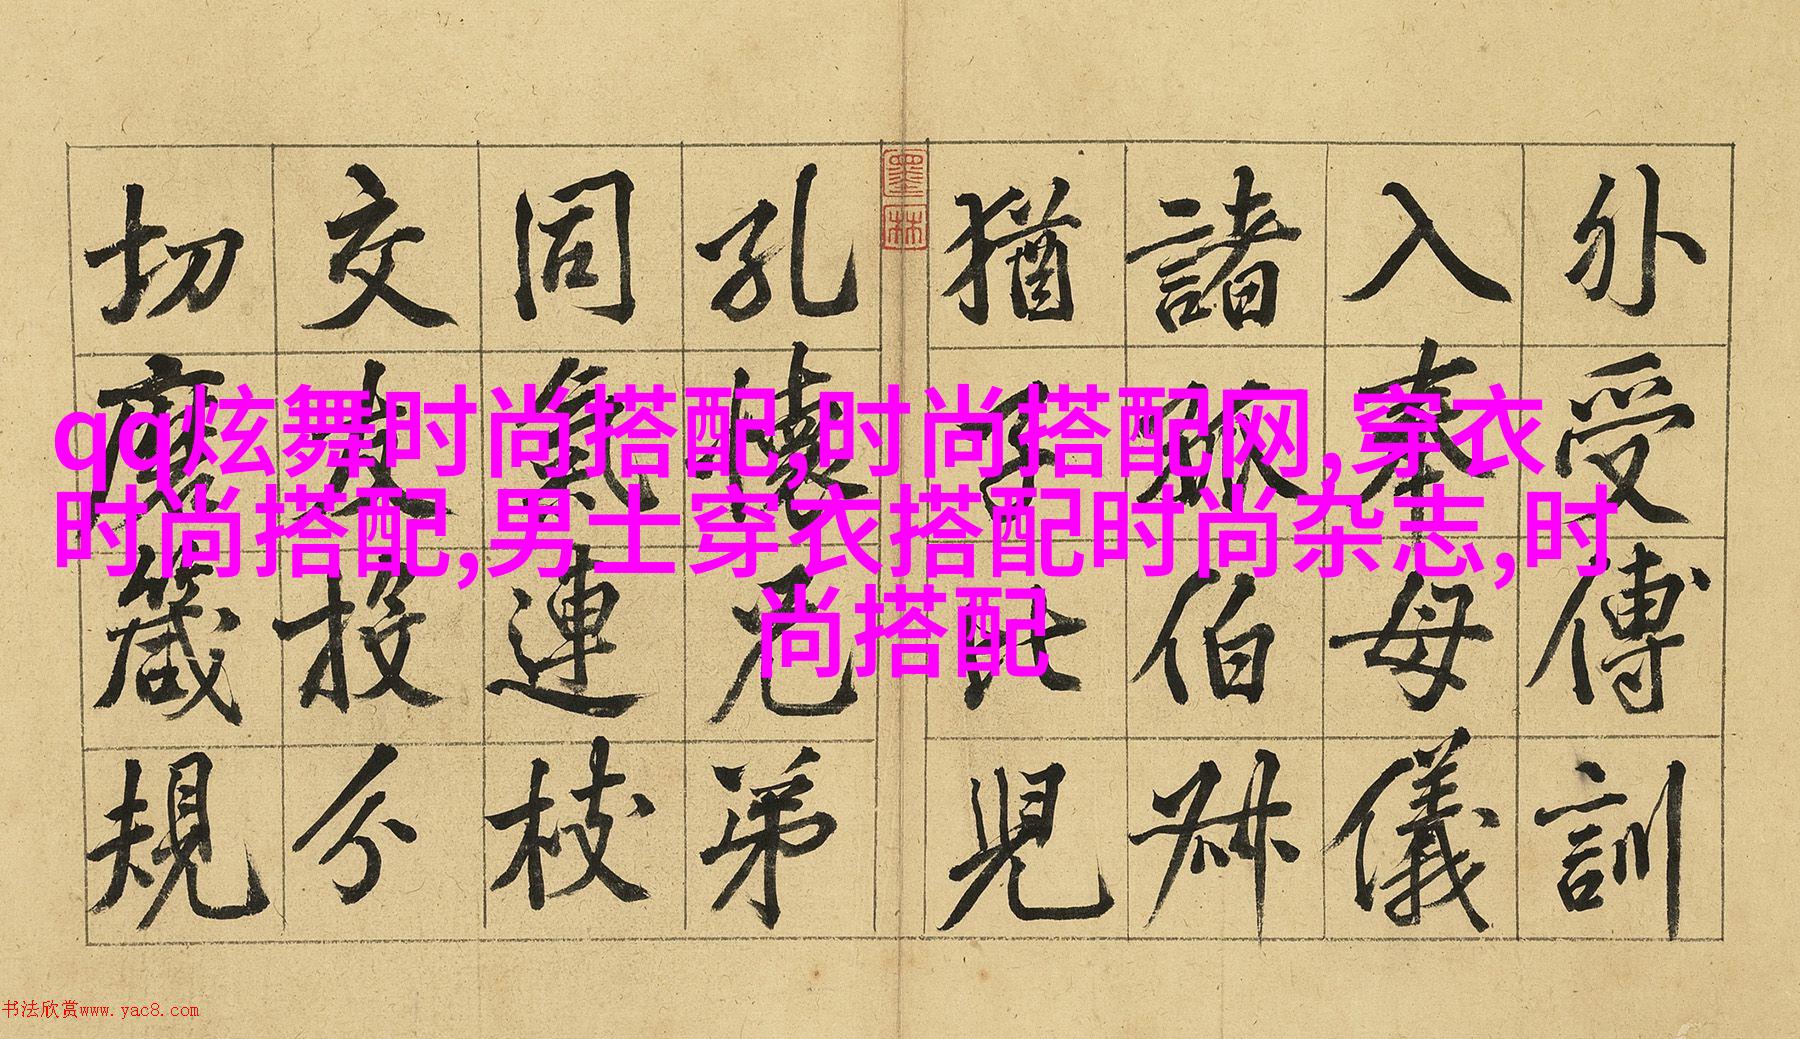 外受傅訓
入奉母儀
諸姑伯叔
猶子比兒
孔懷兄弟
同氣連枝
交友投分
切磨箴規
墨林
qq炫舞时尚搭配,时尚搭配网,穿衣
时尚搭配,男士穿衣搭配时尚杂志,时
尚搭配
书法欣赏www.yac8.com